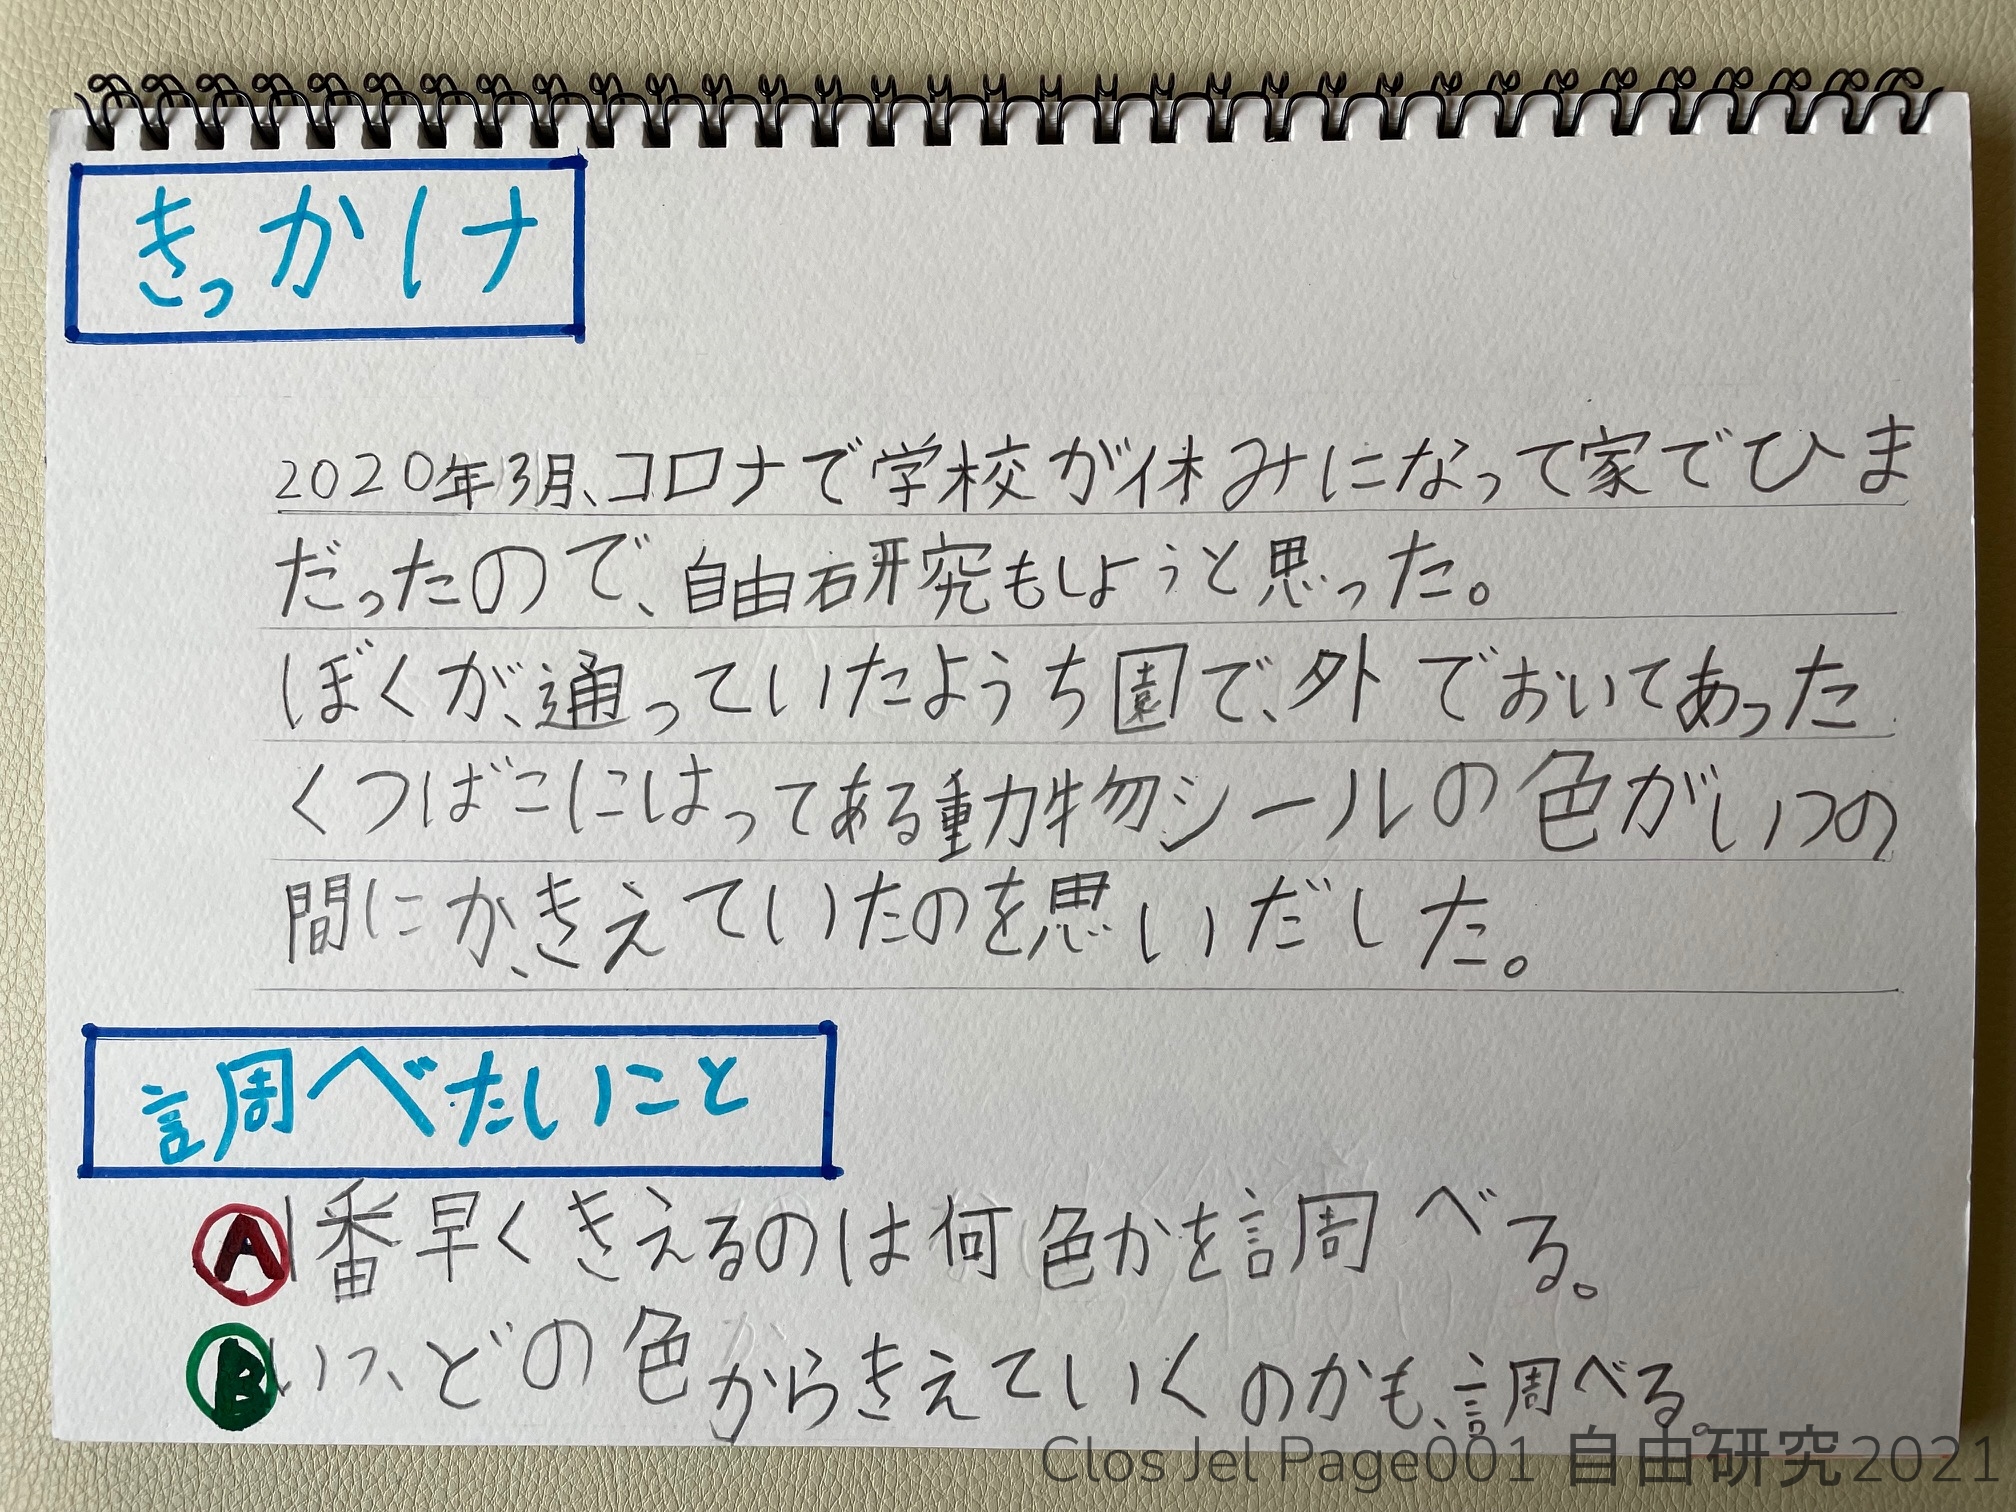 きっかけ
2020年3月、コロナで学校が休みになって家でひま
だったので、自由研究もしようと思った。
ぼくが、通っていたようち園で、外でおいてあった
くつばこにはってある動物シールの色がいつの
間にか、きえていたのを思いだした。
調べたいこと
A 1番早くきえるのは何色かを調べる。
B いつ、どの色からきえていくのかも、調べる。
Clos Jel Page001 自由研究2021